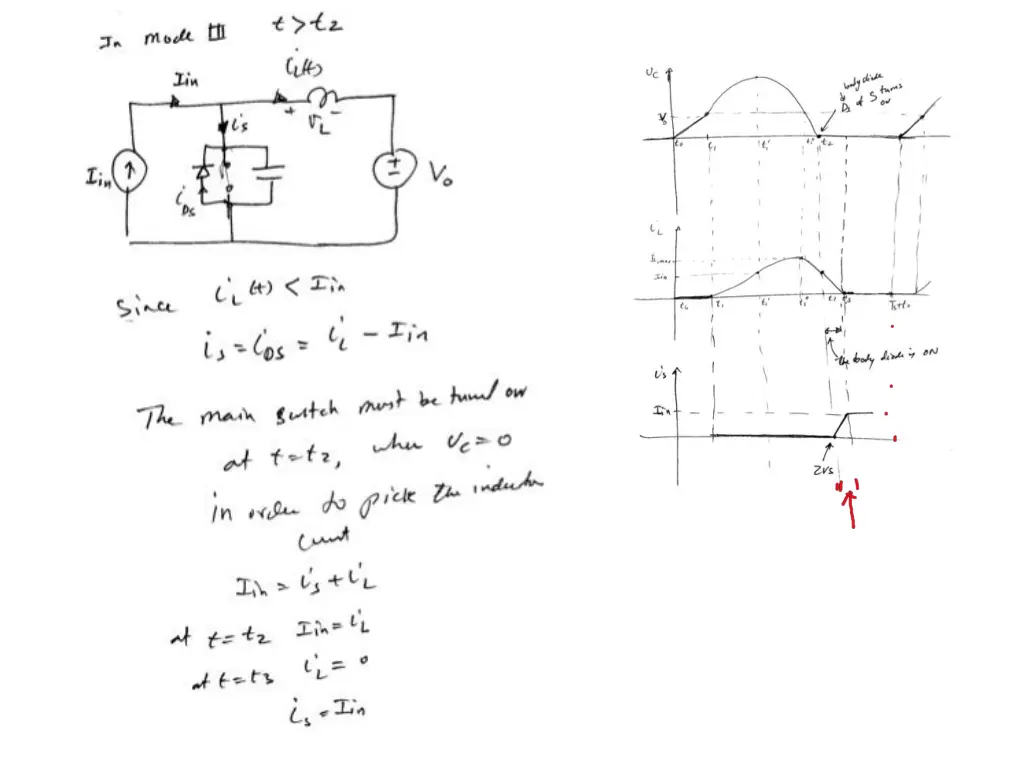 In mode III t > t2
Iin
iL(t)
+ vL -
is
Iin
iDS
Vo
+
-
Since iL(t) < Iin
is = iDS = iL - Iin
The main switch must be turned on
at t = t2, when vC = 0
in order to pick the inductor
current
Iin = is + iL
at t = t2 Iin = iL
at t = t3 iL = 0
is = Iin
vC
body diode
Ds of S turns
on
Vo
t0 t1 t1' t1" t2
iL
Iin
t0 t1 t1' t1" t2 t3 Ts+t0
the body diode is ON
is
Iin
ZVS